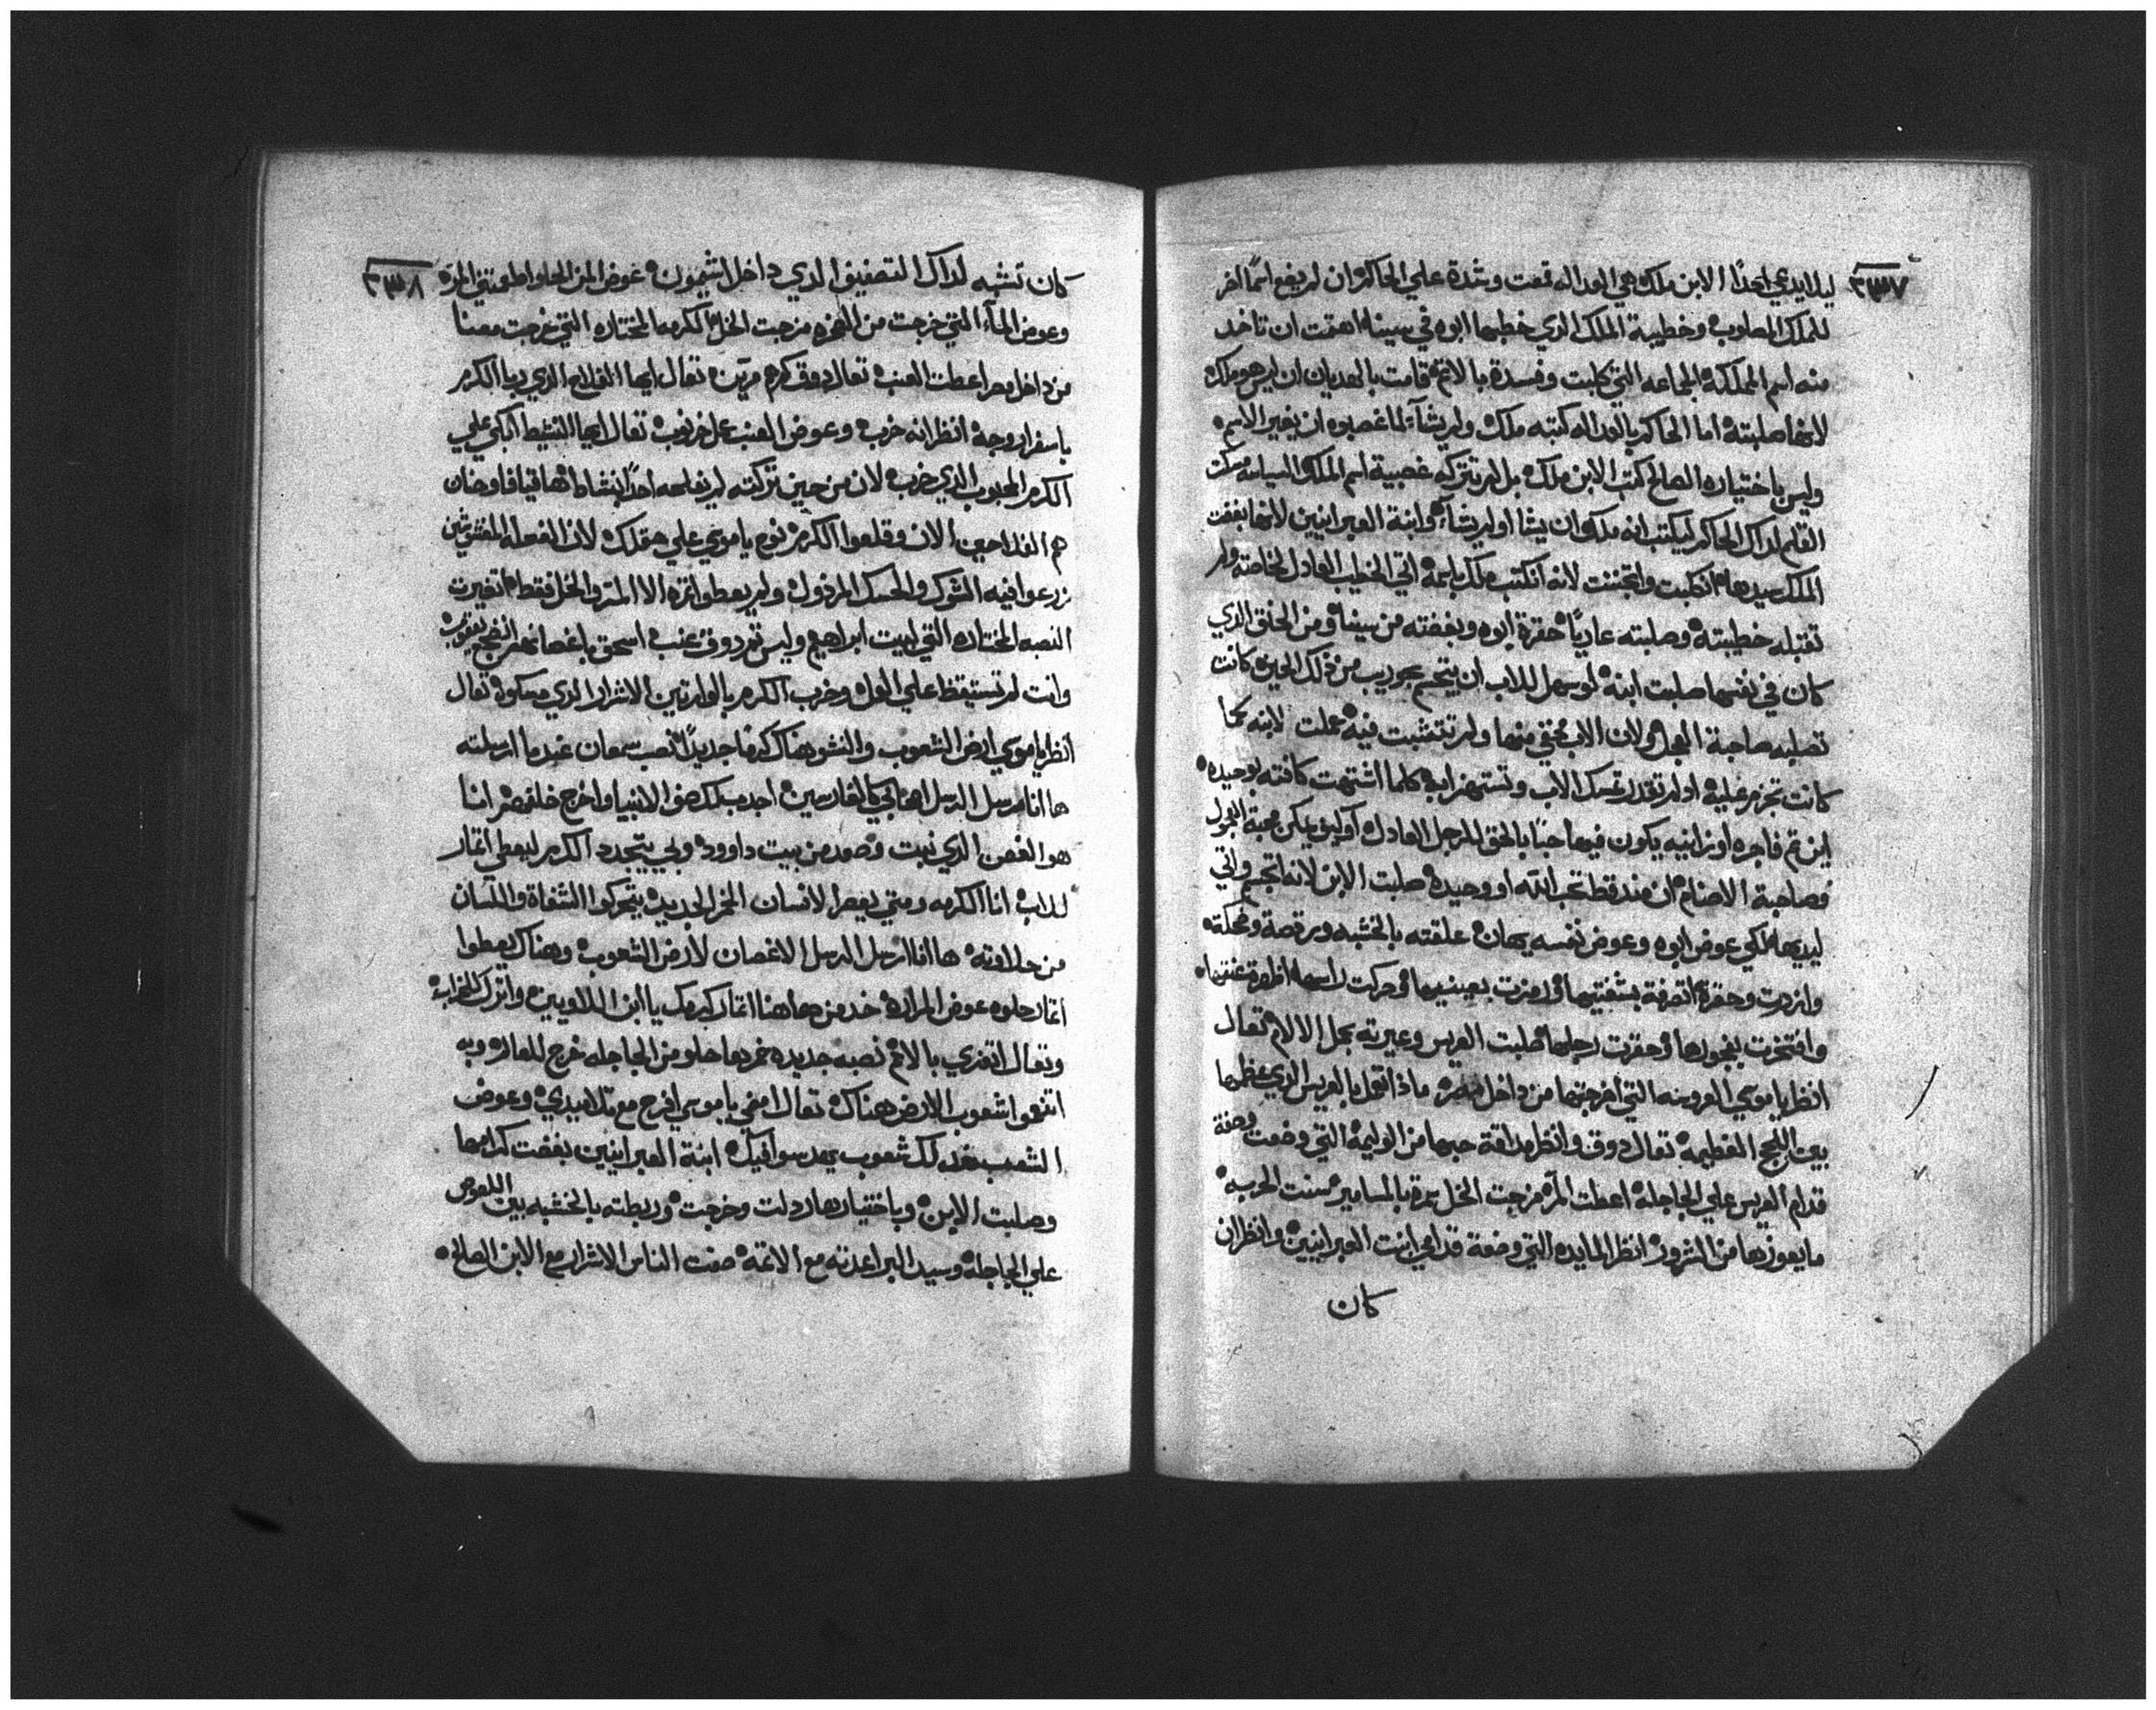 ٢٣٧
ليلا يدعي احدًا الابن ملك هي العداله قمعت وشدة علي الحاكم ان لم يضع اسمًا اخر
للملك المصلوب وخطيبة الملك الذي خطبها ابوه في سينا اهتمت ان تاخد
منه اسم المملكة الجماعه التي كلبت وفسدة بالاثم قامت بالهديان ان ليس هو ملك
لانها صلبته اما الحاكم بالعداله كتبه ملك ولم يشاء لما غصبوه ان يغير الاسم
وليس باختياره الصالح كتب الابن ملك بل لم تتركه غصبية اسم الملك السياسه مسكت
القلم لداك الحاكم ليكتب انه ملك ان يشا او لم يشاء وابنة العبرانيين لانها بغضت
الملك سيدها انكلبت واتجننت لانه انكتب ملك باسمه اتي الخطيب العادل لخاصته ولم
تقبله خطيبته وصلبته عاريًا حقرة ابوه وبغضته من سينا ومن الحنق الذي
كان في نفسها صلبت ابنه لو سهل للاب ان يتجسم بحوريب من ذلك الحين كانت
تصلبه صاحبة العجل ولان الاب مخفي منها ولم تتشبت فيه عملت لابنه كما
كانت تجزم عليه اد لم تقدر تمسك الاب وتستهزا به كلما اشتهت كافته بوحيده
اين تم فاجره او زانيه يكون فيها حبًا بالحق للرجل العادل او كيف يمكن محبة البتول
وصاحبة الاصنام ان مند قط تحب الله او وحيده صلبت الابن لانه اتجسم واتي
ليديها لكي عوض ابوه وعوض نفسه يهان علقته بالخشبه وبرقصة وضحكة
وازدرت وحقرة اتصرفة بشفتيها ورمزت بعينيها وحركت راسها افرطة عنقها
وافتخرت بفجورها وحقرت رجلها صلبت العريس وعيرته بحمل الالام تعال
انظر يا موسي العروسه التي اخرجتها من داخل مصر ماذا تعمل بالعريس الذي عظمها
بين اللجج العظيمه تعال دوق وانظر مداقة حبها من الوليمة التي وضعت وصنة
قدام العريس علي الجاجلة اعطت المر مزجت الخل سمرة بالمسامير سنت الحربه
ما يعوزها من الشرور انظر المايده التي وضعة قدامي ابنت العبرانيين وانظر ان
كان
٢٣٨
كان تشبه لداك التصنيف الذي داخل اشيمون عوض المن الحلو اطعمتني المر
وعوض الماء التي خرجت من الصخره مزجت الخل الكرمه المختاره التي خرجت معنا
من داخل مصر اعطت العنب تعال دوق كرم مرين تعال ايها الفلاح الذي ربا الكرم
باسفار روجة انظر انه خرب وعوض العنب عمل خرنوب تعال ايها النشيط ابكي علي
الكرم المحبوب الذي خرب لان من حين تركته لم يفلحه احدًا بنشاط ها قيافا وحنان
هم الفلاحين الان وقلعوا الكرم نوح يا موسي علي حقلك لان الفعله المغشوشين
زرعوا فيه الشوك والحسك المرذول ولم يعطوا ثمره الا المر والخل فقط اتغيرت
النصبه المختاره التي لبيت ابراهيم وليس تم دوق عنب اسحق باغصانهم انضج يعقوب
وانت لم تستيقظ علي العمل وخرب الكرم بالوارتين الاشرار الذي مسكوه تعال
انظر يا موسي ارض الشعوب والنشو هناك كرمًا جديدًا نصب سمعان عندما ارسلته
ها انا مرسل الرسل اصحابي كالفارسين اجدب لك صف الانبيا واخرج خلفهم انا
هو الغصن الذي نبت وصعد من بيت داوود وبي يتجدد الكرم ليعطي اتمار
للاب انا الكرمه ومتي يعصر الانسان الخمر الجديد يتحركوا الشفاة واللسان
من حلاوته ها انا ارسل الرسل الاغصان لارض الشعوب وهناك يعطوا
اتمار حلوه عوض المراره خد من هاهنا اتمار كرمك يا ابن اللاويين واترك الخرابه
وتعال اتعزي بالاثم نصبه جديده خمرها حلو من الجاجله خرج للعالم وبه
اتنعموا شعوب الارض هناك تعال امضي يا موسي افرح مع تلاميدي وعوض
الشعب خد لك شعوب يقدسوا فيك ابنة العبرانيين بغضت كرامها
وصلبت الابن وباختيارها ردلت وخرجت وربطته بالخشبه بين اللصوص
علي الجاجله وسيد البر اعدته مع الاثمة صفت الناس الاشرار مع الابن الصالح